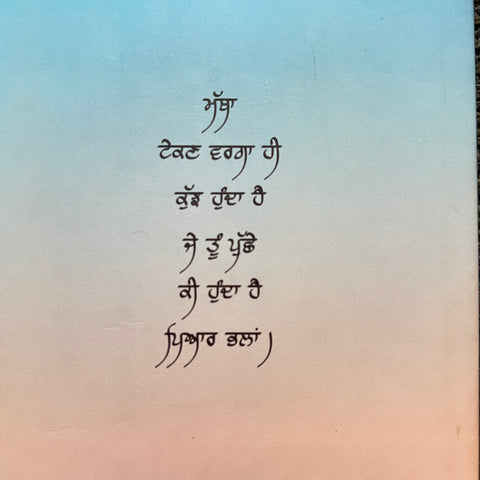 ਮੱਥਾ
ਟੇਕਣ ਵਰਗਾ ਹੀ
ਕੁੱਝ ਹੁੰਦਾ ਹੈ
ਜੇ ਤੂੰ ਪੁੱਛੇ
ਕੀ ਹੁੰਦਾ ਹੈ
ਪਿਆਰ ਭਲਾਂ।